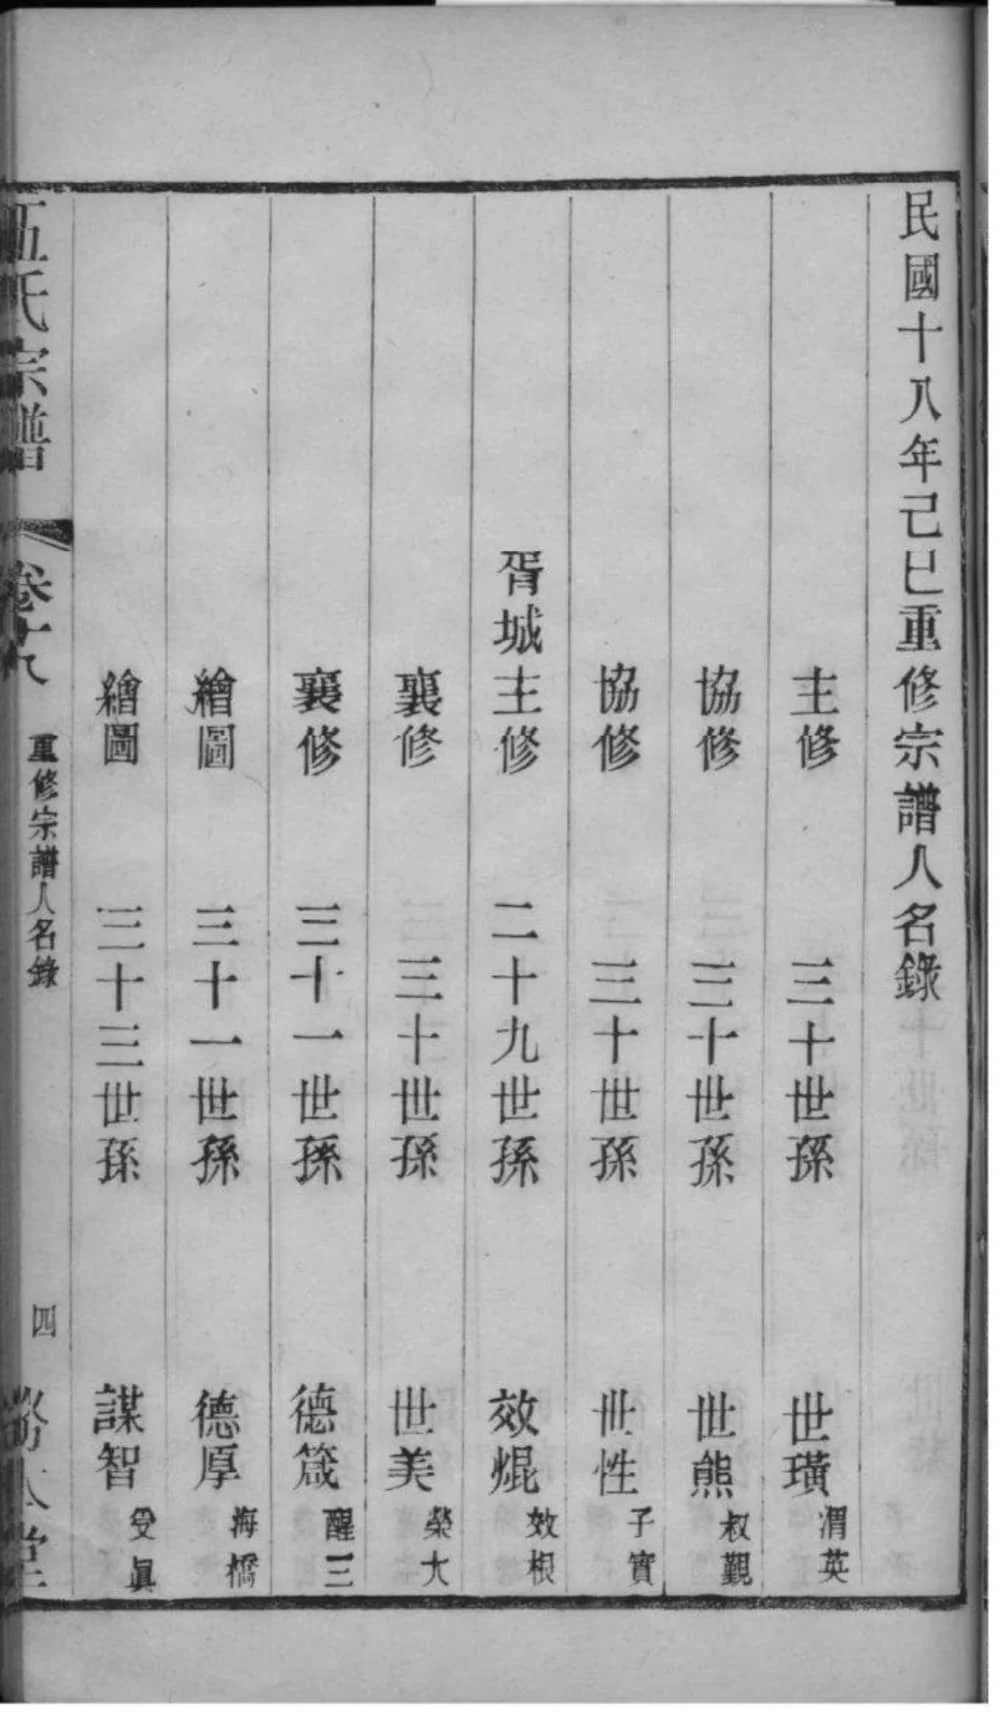 民國十八年己巳重修宗譜人名錄
主修 三十世孫 世璜 渭英
協修 三十世孫 世熊 叔覲
協修 三十世孫 世性 子實
胥城主修 二十九世孫 效焜 效根
襄修 三十世孫 世美 榮大
襄修 三十一世孫 德箴 醒三
繪圖 三十一世孫 德厚 海橋
繪圖 三十三世孫 謀智 受眞
伍氏宗譜 卷十八 重修宗譜人名錄 四 本堂